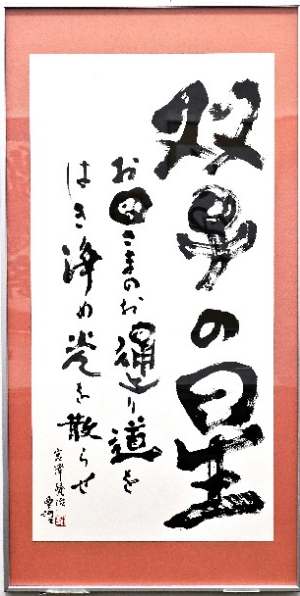 双子の星
お日さまのお通り道を
はき浄め光を散らせ
宮澤賢治